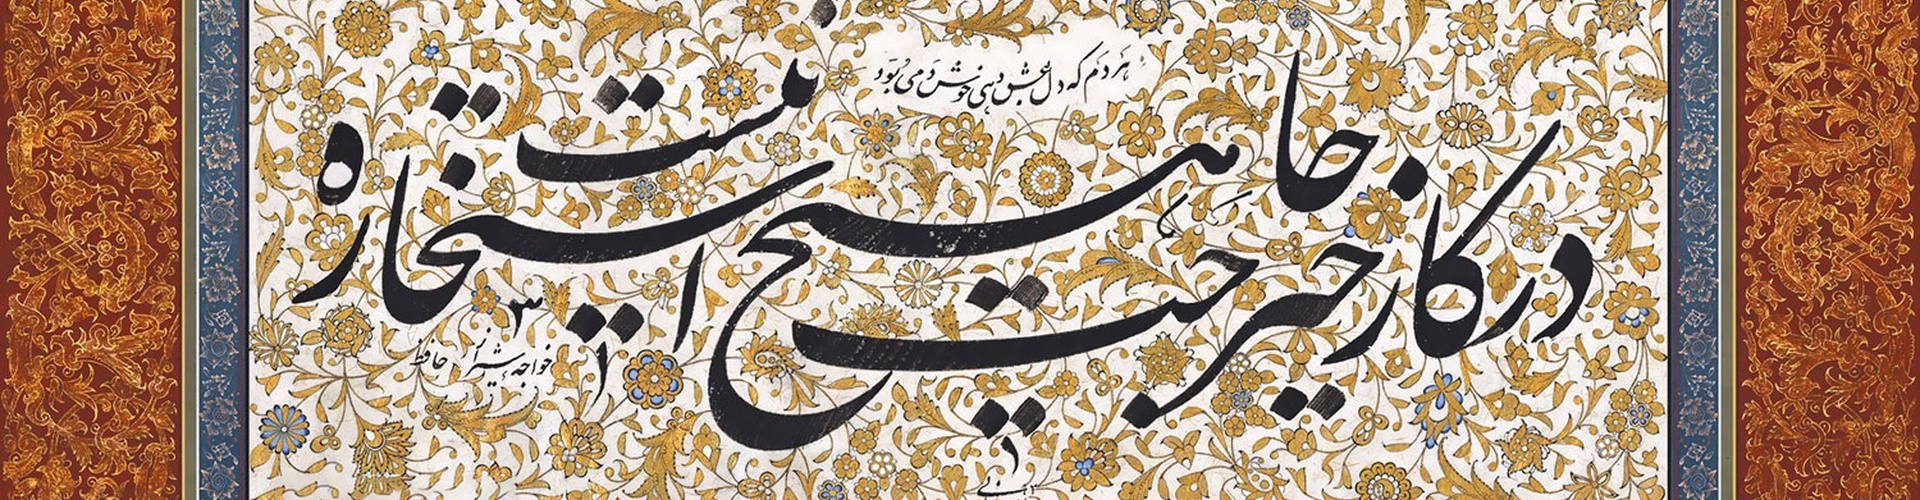 هر دم که دل بعشق دهی خوش دمی بود
در کار خیر حاجت هیچ استخاره نیست
خواجه شیراز حافظ